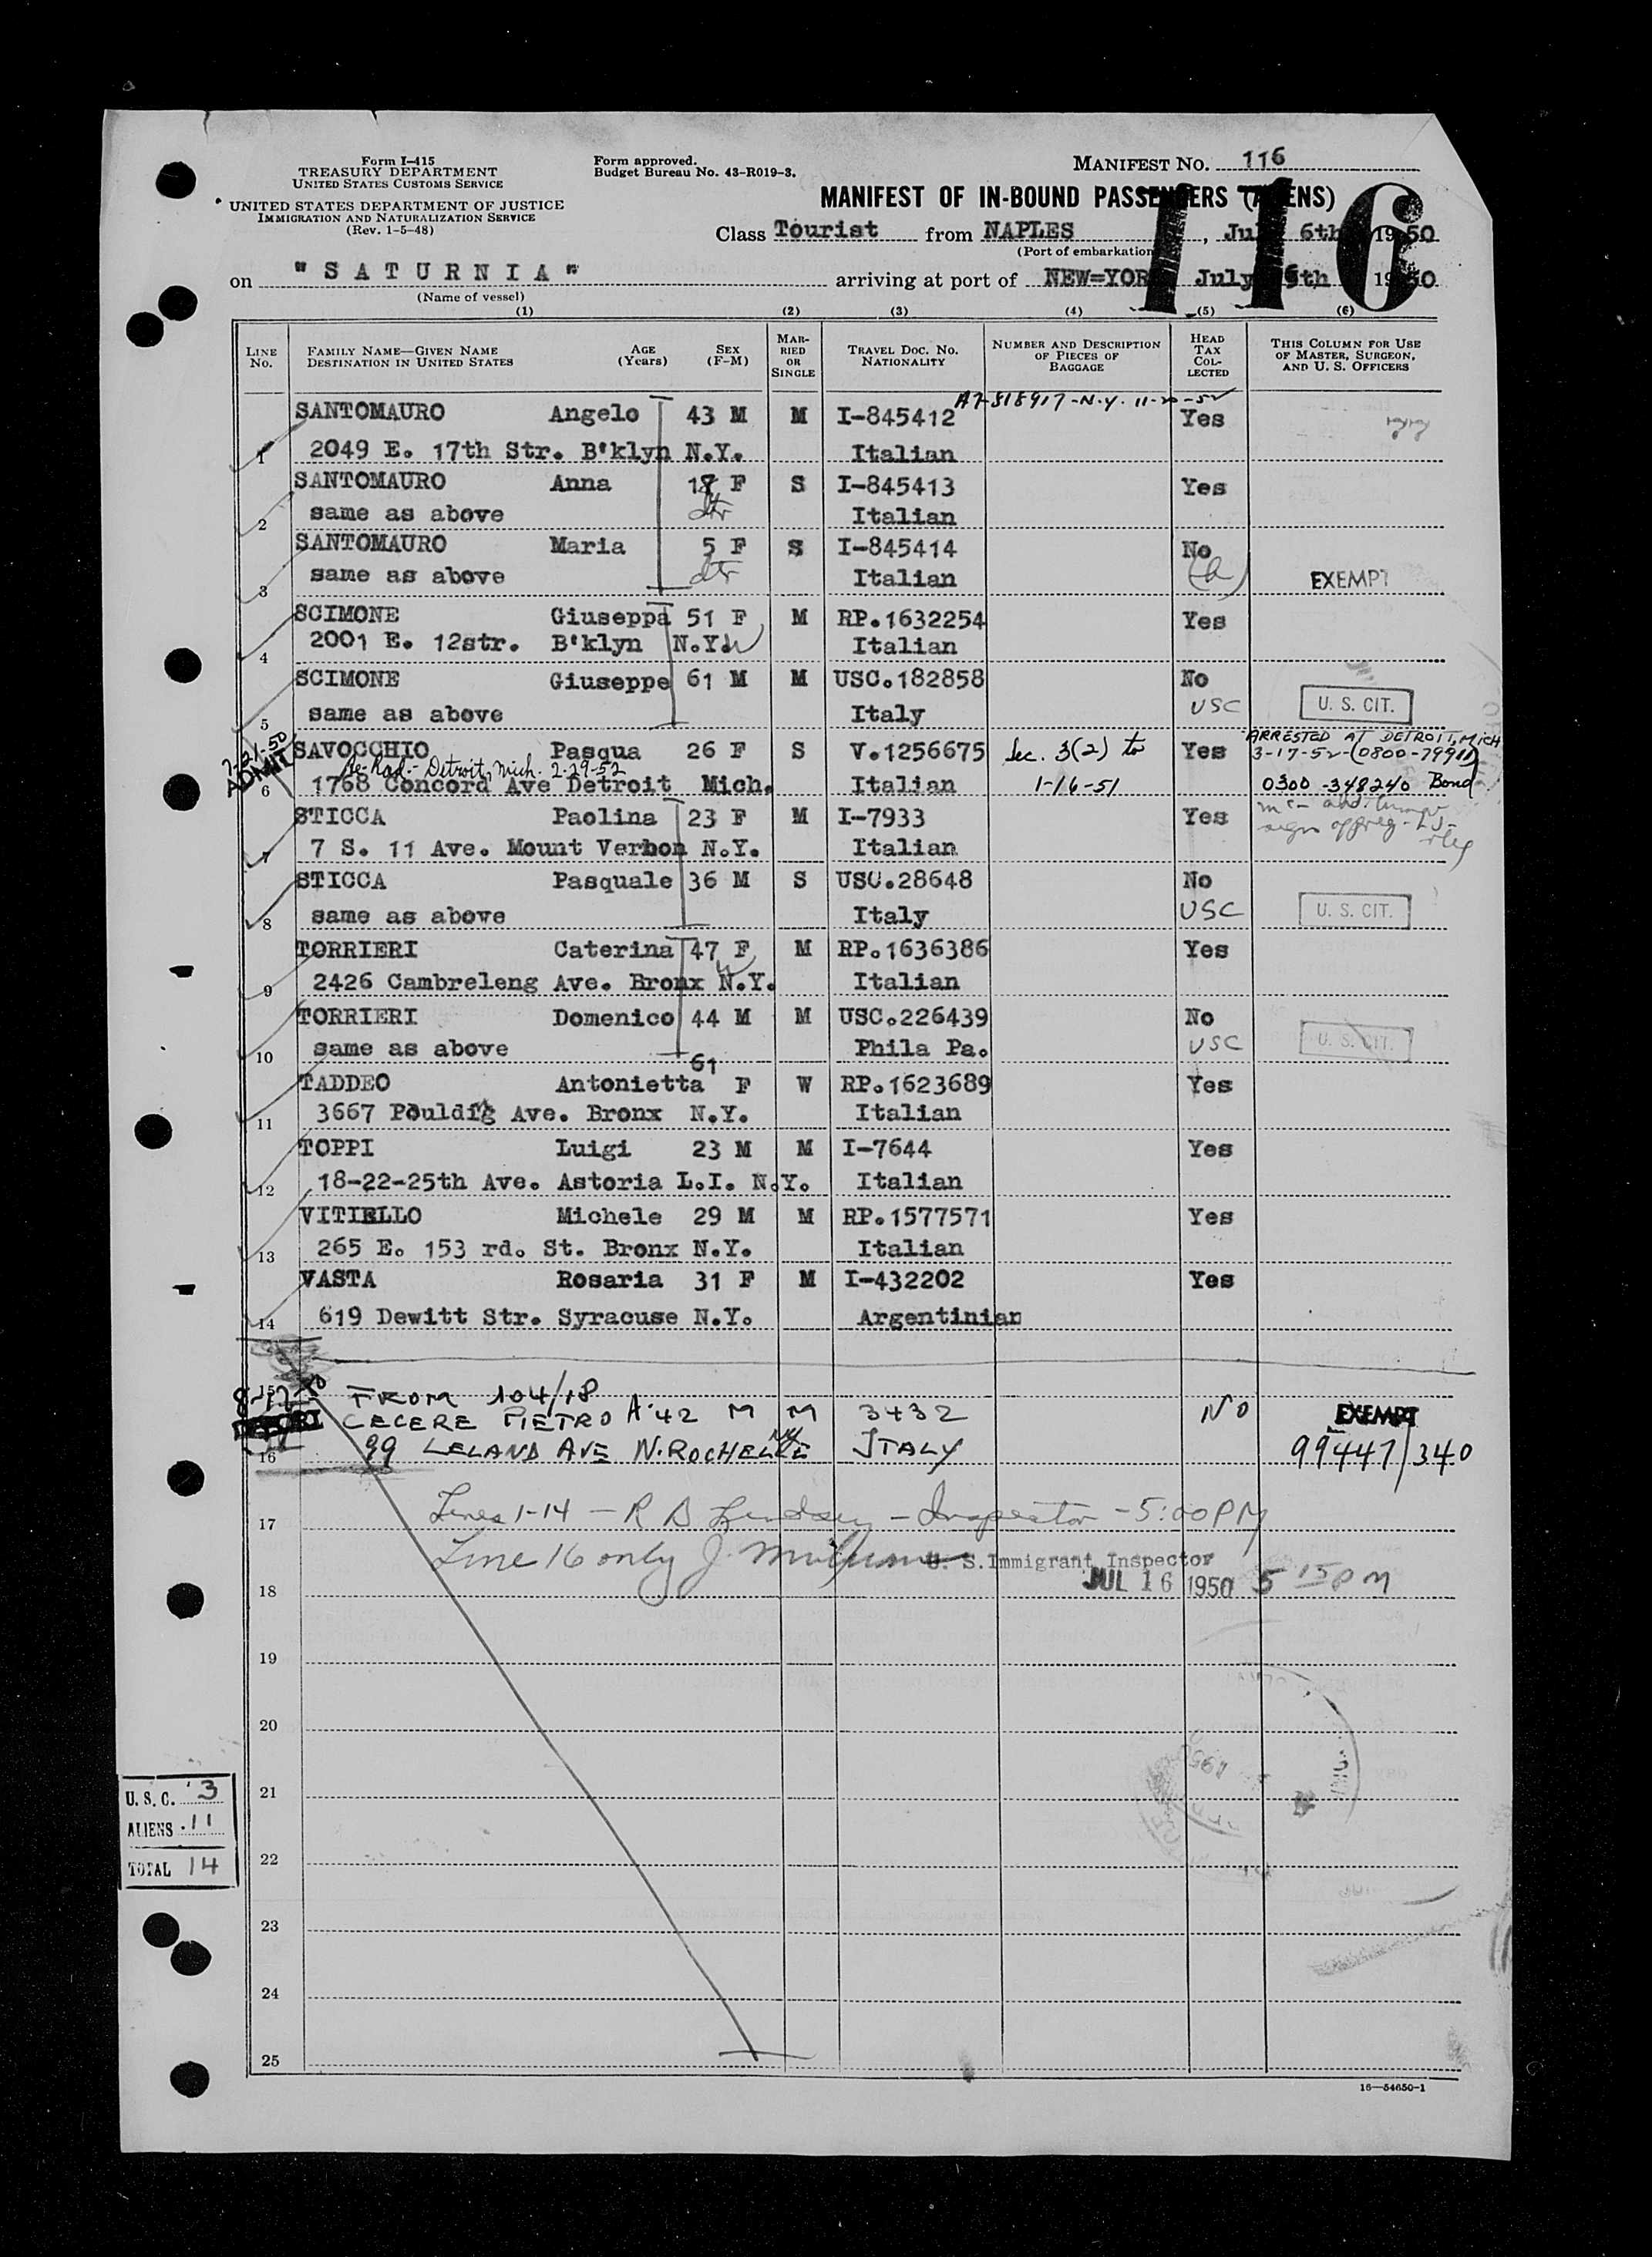 Form I-415
TREASURY DEPARTMENT
UNITED STATES CUSTOMS SERVICE
UNITED STATES DEPARTMENT OF JUSTICE
IMMIGRATION AND NATURALIZATION SERVICE
(Rev. 1-5-48)
Form approved.
Budget Bureau No. 43-R019-3.
MANIFEST NO. 116
MANIFEST OF IN-BOUND PASSENGERS (ALIENS)
116
Class Tourist from NAPLES, July 6th 1950
(Port of embarkation)
on "SATURNIA" arriving at port of NEW=YORK July 16th 1950
(Name of vessel)
(1) (2) (3) (4) (5) (6)
LINE NO. FAMILY NAME—GIVEN NAME DESTINATION IN UNITED STATES AGE (Years) SEX (F-M) MARRIED OR SINGLE TRAVEL DOC. NO. NATIONALITY NUMBER AND DESCRIPTION OF PIECES OF BAGGAGE HEAD TAX COLLECTED THIS COLUMN FOR USE OF MASTER, SURGEON, AND U. S. OFFICERS
A7-818917-N.Y. 11-20-52
SANTOMAURO Angelo 43 M M I-845412 Yes
1 2049 E. 17th Str. B'klyn N.Y. Italian
SANTOMAURO Anna F S I-845413 Yes
2 same as above dtr Italian
SANTOMAURO Maria 5 F S I-845414 No
3 same as above dtr Italian EXEMPT
SCIMONE Giuseppa 51 F M RP.1632254 Yes
4 2001 E. 12str. B'klyn N.Y. W Italian
SCIMONE Giuseppe 61 M M USC.182858 No
5 same as above Italy USC U. S. CIT.
7-21-50 ADMIT
SAVOCCHIO Pasqua 26 F S V.1256675 Sec. 3(2) to Yes ARRESTED AT DETROIT, MICH 3-17-52-(0800-7991)
Detroit, Mich. 2-29-52
6 1768 Concord Ave Detroit Mich. Italian 1-16-51 0300-348240 Bond
STICCA Paolina 23 F M I-7933 Yes
7 7 S. 11 Ave. Mount Vernon N.Y. Italian
STICCA Pasquale 36 M S USC.28648 No
8 same as above Italy USC U. S. CIT.
TORRIERI Caterina 47 F M RP.1636386 Yes
9 2426 Cambreleng Ave. Bronx N.Y. W Italian
TORRIERI Domenico 44 M M USC.226439 No
10 same as above Phila Pa. USC U. S. CIT.
TADDEO Antonietta 61 F W RP.1623689 Yes
11 3667 Pouldig Ave. Bronx N.Y. Italian
TOPPI Luigi 23 M M I-7644 Yes
12 18-22-25th Ave. Astoria L.I. N.Y. Italian
VITIELLO Michele 29 M M RP.1577571 Yes
13 265 E. 153 rd. St. Bronx N.Y. Italian
VASTA Rosaria 31 F M I-432202 Yes
14 619 Dewitt Str. Syracuse N.Y. Argentinian
15 FROM 104/18
CECERE PIETRO A 42 M M 3432 NO EXEMPT
16 99 LELAND AVE N.ROCHELLE NY ITALY 99447/340
17 Lines 1-14 - R B Lindsey - Inspector - 5:00 PM
Line 16 only J. U. S. Immigrant Inspector
18 JUL 16 1950 5 15 PM
19
20
21
22
23
24
25
U. S. C. 3
ALIENS 11
TOTAL 14
16—54650-1